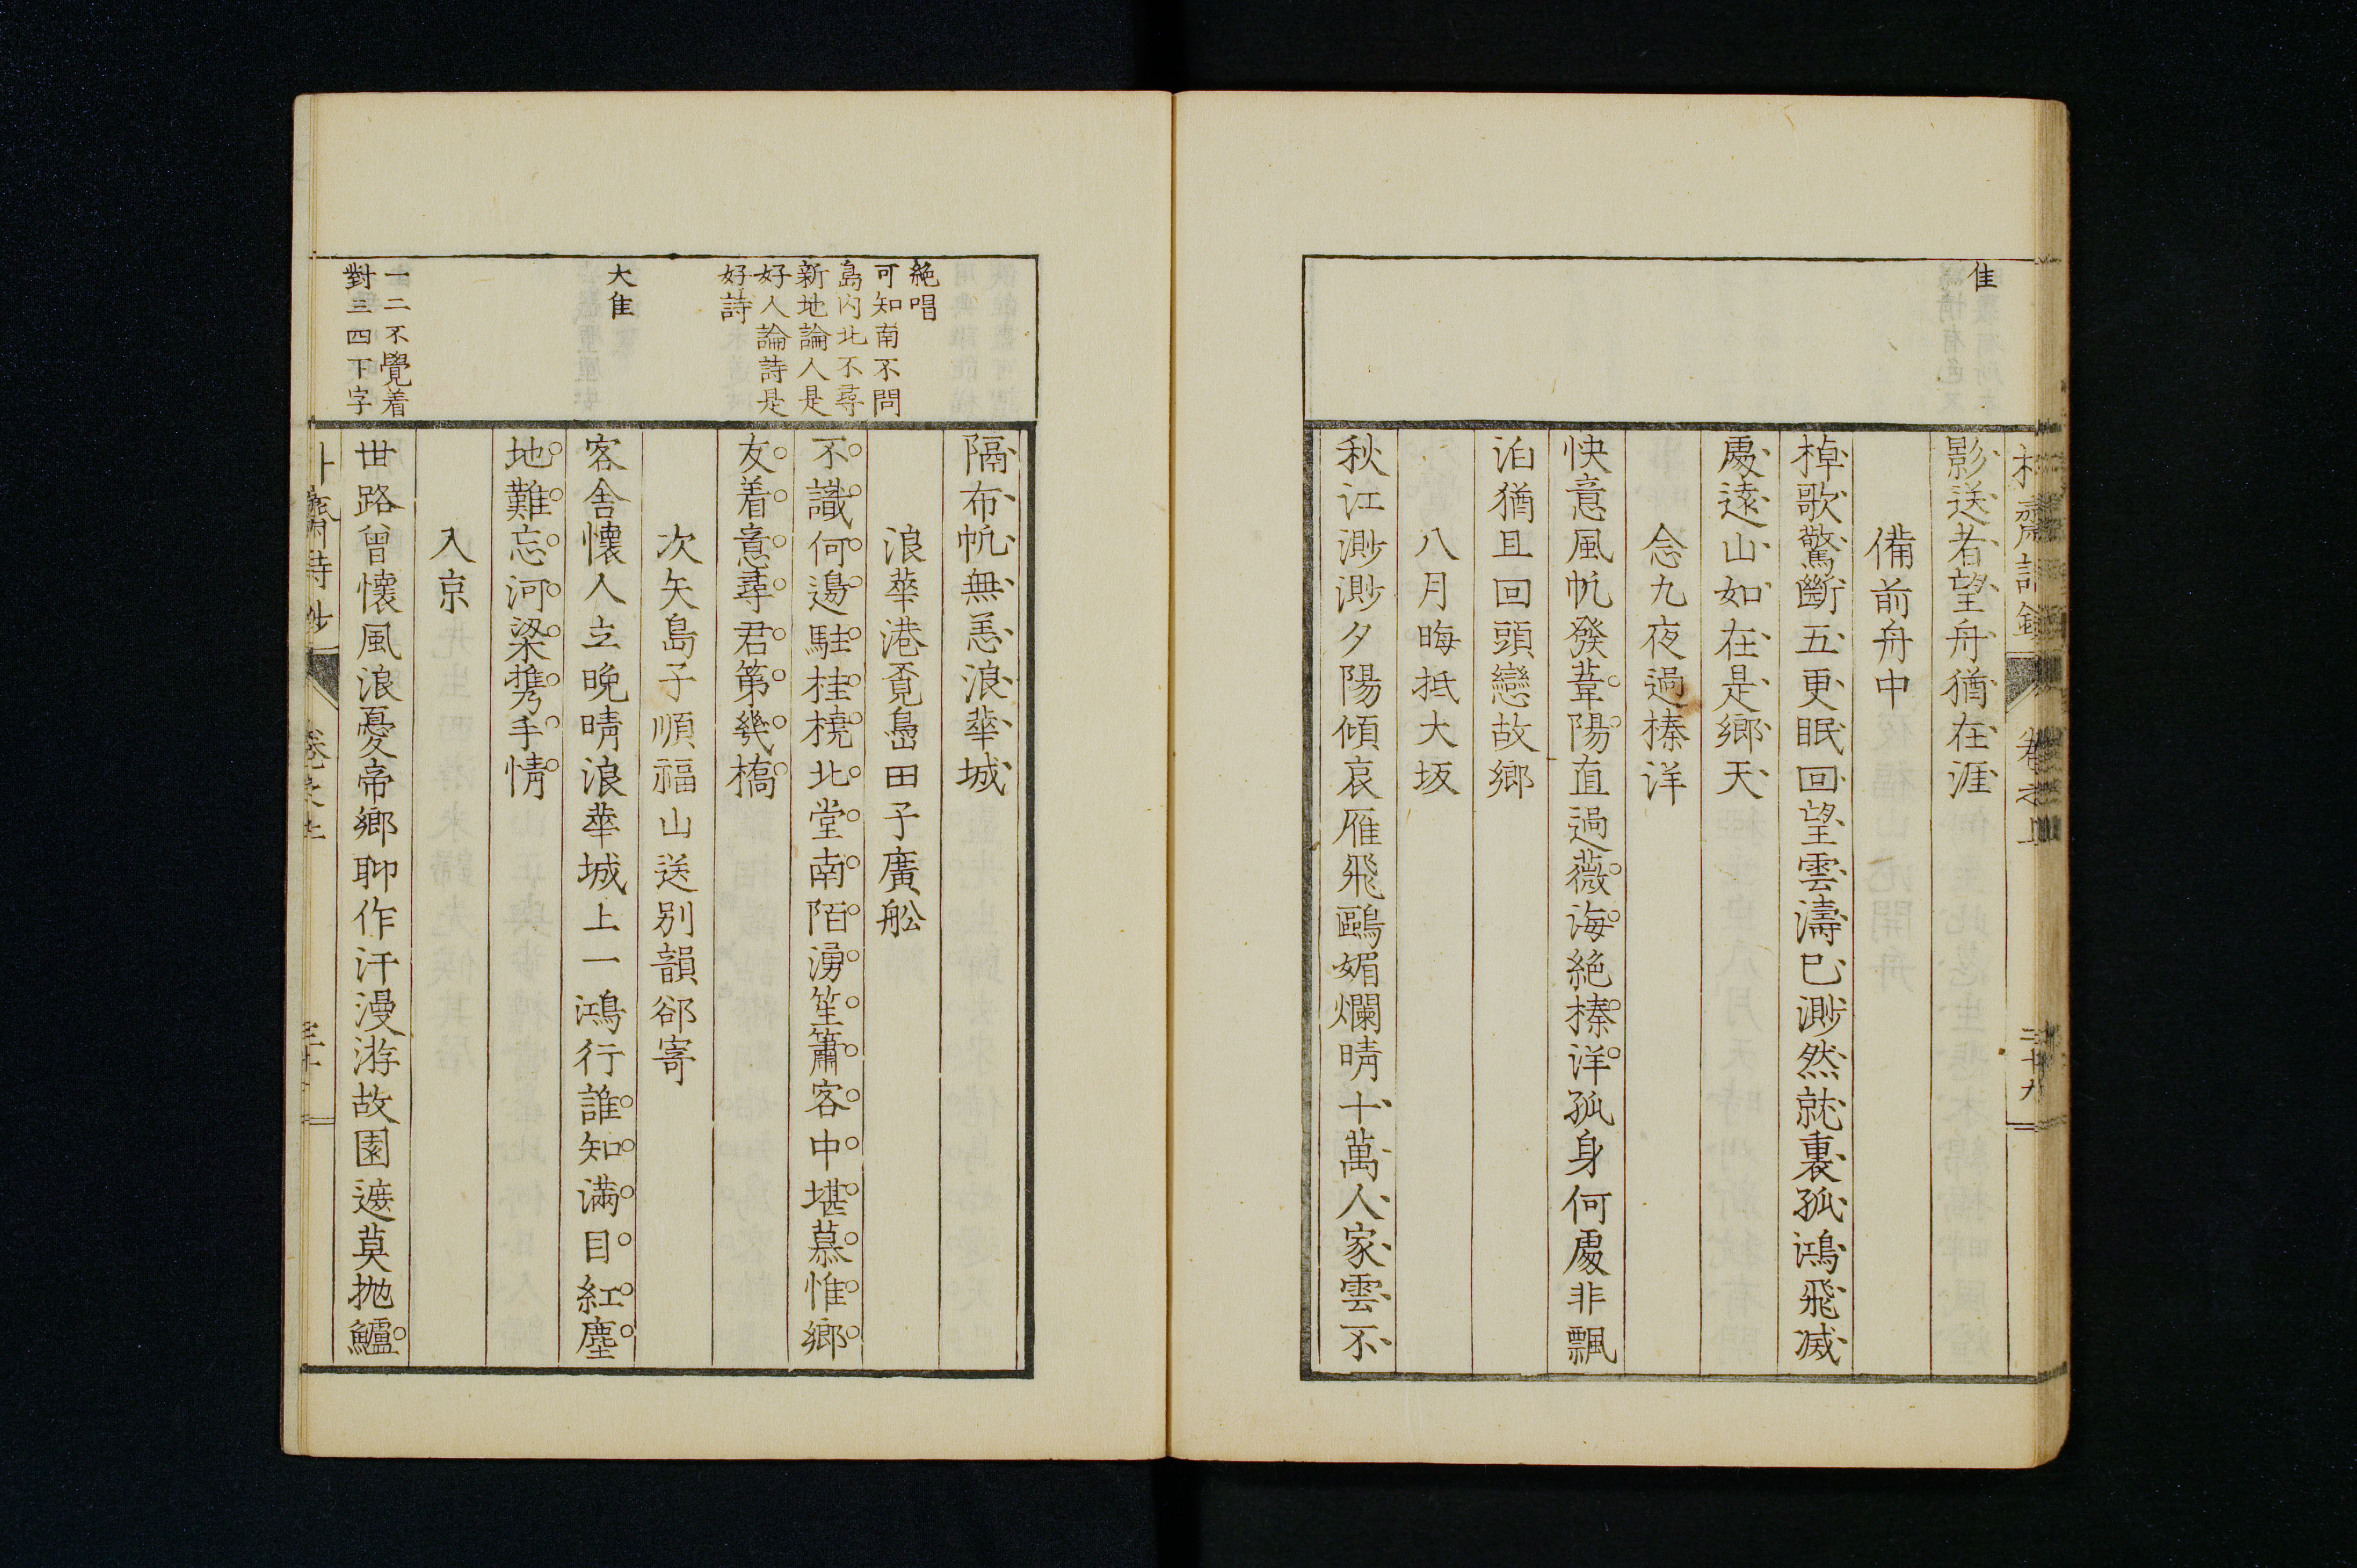 佳
影送者望舟猶在涯
備前舟中
棹歌驚斷五更眠回望雲濤已渺然就裏孤鴻飛滅
處遠山如在是鄉天
念九夜過榛洋
快意風帆發葦陽直過薇海絶榛洋孤身何處非飄
泊猶且回頭戀故鄉
八月晦抵大坂
秋江渺渺夕陽傾哀雁飛鷗媚爛晴十萬人家雲不
卷之上
二十九
隔布帆無恙浪華城
絶唱
可知南不問
島内北不尋
新地論人是
好人論詩是
好詩
浪華港覔島田子廣舩
不識何邊駐桂橈北堂南陌湧笙簫客中堪慕惟鄉
友着意尋君第幾橋
次矢島子順福山送别韻郤寄
大隹
客舍懷人立晩晴浪華城上一鴻行誰知滿目紅塵
地難忘河梁携手情
入京
一二不覺着
對三四下字
世路曾懷風浪憂帝鄉聊作汗漫游故園遮莫抛鱸